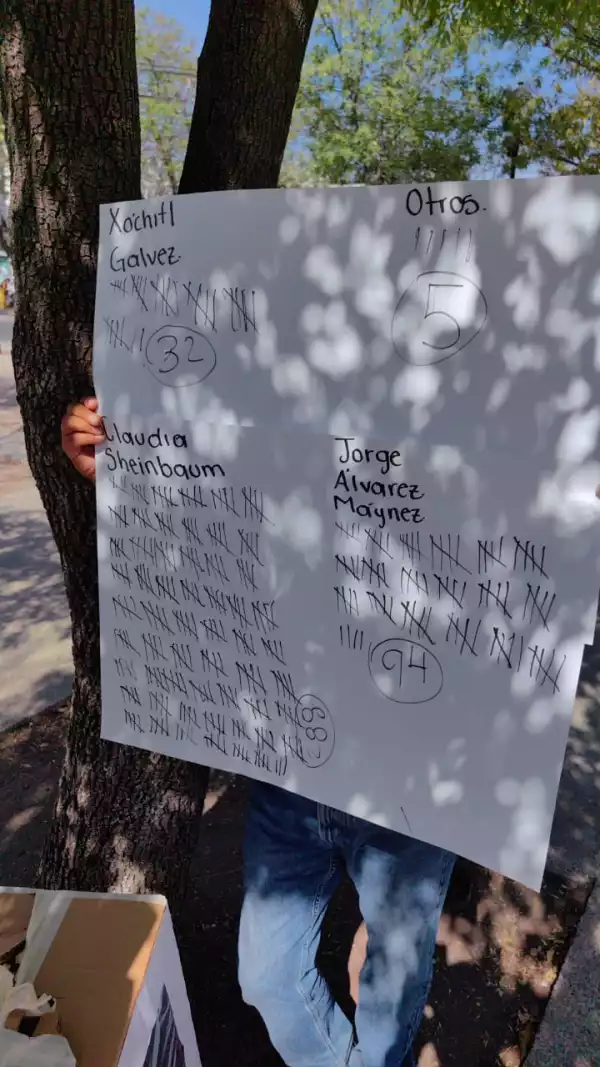 Xóchitl
Galvez
32
Otros.
5
Claudia
Sheinbaum
Jorge
Álvarez
Máynez
94